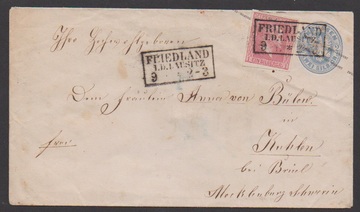 Ihro Hochwohlgeboren
FRIEDLAND
I.D. LAUSITZ
9 2-3
FRIEDLAND
I.D. LAUSITZ
9
Dem Fräulein Anna von Bülow
in
Kuhlen
frei
bei Brüel
Mecklenburg Schwerin